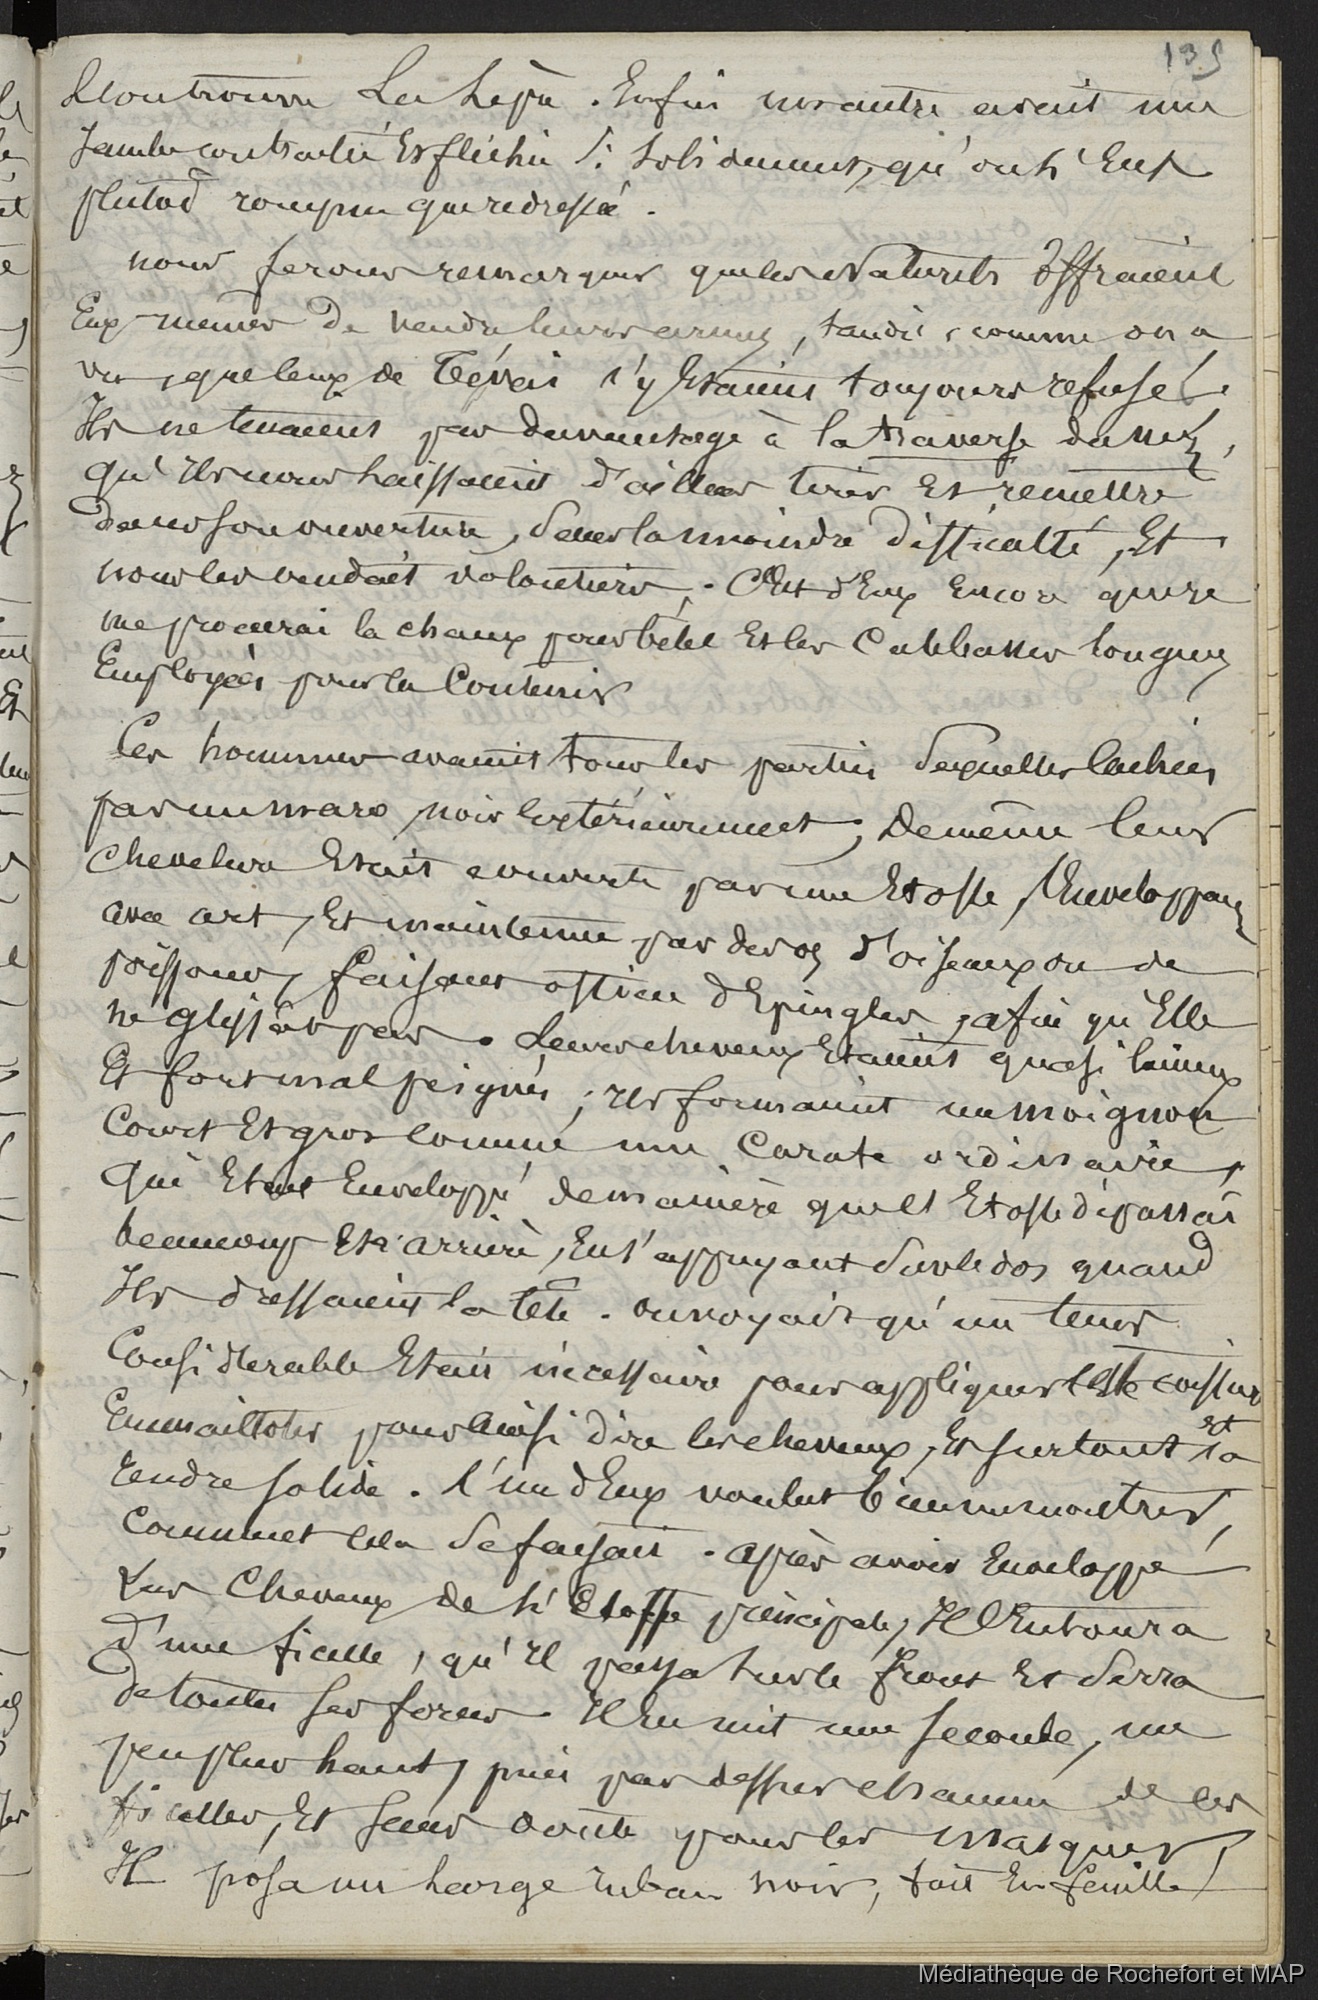 135
La lèpre. Enfin un autre avait une
jambe contractée Et fléchie si solidement, qu'on l'Eut
plutod rompue que redressée.
nous ferons remarquer que les Naturels offraient
Eux memes de vendre leurs armes, tandis, comme on a
vu, que ceux de Tévai s'y Etaient toujours refusés.
Ils ne tenaient pas davantage à la traverse du nez,
qu'Ils nous laissaient d'ailleurs tirer Et remettre
dans son ouverture, sans la moindre difficulté, Et
nous les vendait volontiers. C'Est d'Eux Encore que je
me procurai la chaux pour bétel Et les Calebasses longues
Employées pour la Contenir
Ces hommes avaient tous les parties sexuelles cachées
par un maro noir Extérieurement; de meme leur
chevelure Etait couverte par une Etoffe, l'Enveloppant
avec art, Et maintenue par des os d'oiseaux ou de
poissons, faisant office d'Epingles, afin qu'Elle
ne glissât pas. Leurs cheveux Etaient quasi laineux
Et fort mal peignés; Ils formaient un moignon
Court Et gros comme une Carafe ordinaire,
qui Etait Enveloppé de manière que l'Etoffe dépassait
beaucoup En arrière, En s'appuyant sur le dos quand
Ils dressaient la tête. on voyait qu'un tems
Considerable Etait nécessaire pour appliquer cette coiffure
Emmailloter pour Ainsi dire les cheveux, Et surtout et la
rendre solide. l'un d'Eux voulut bien me montrer,
comment cela se faisait. après avoir Enveloppé
Les Cheveux de l'Etoffe principale, Il l'Entoura
d'une ficelle, qu'Il passa sur le front Et serra
de toutes ses forces. Il En mit une seconde, un
peu plus haut, puis par dessus chacune de ces
ficelles, Et sans doute pour les masquer,
Il posa un large ruban noir, fait En feuille
Médiathèque de Rochefort et MAP